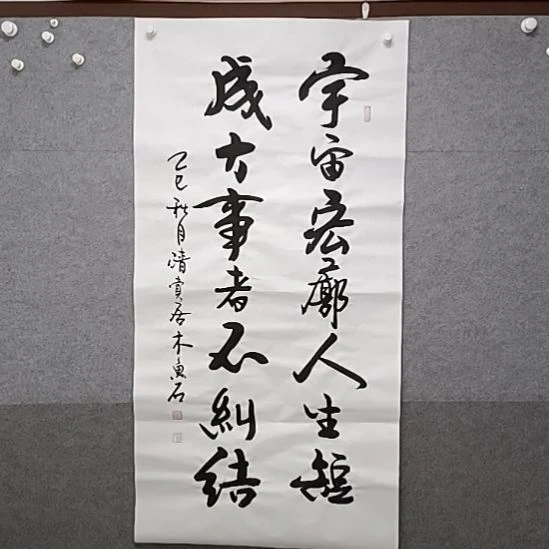 宇宙宏廓人生短
成大事者不糾结
乙巳秋月清賞居木魚石